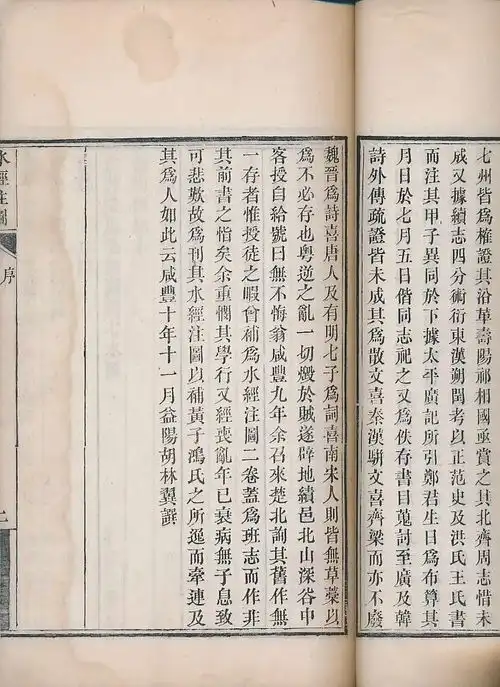 七州皆爲榷其沿革壽陽祁相國亟賞之北齊周志惜未
成又據續志四分術衍東漢朔閏考以正范史及洪氏王氏書
而注其甲子異同於下據太平廣記所引鄭君生日爲布算其
月日於七月五日偕同志祀之又爲佚存書目蒐討至廣及韓
詩外傳疏證皆未成其爲散文喜秦漢駢文喜齊梁而亦不廢
魏晉爲詩喜唐人及有明七子爲詞喜南宋人則皆無草藁以
爲不必存也粵逆之亂一切燬於賊遂辟地績邑北山深谷中
客授自給號曰無不悔翁咸豐九年余召來楚北詢其舊作無
一存者惟授徒之暇曾補爲水經注圖二卷蓋爲班志而作非
其前書之恉矣余重憫其學行又經喪亂年已衰病無子息致
可悲歎故爲刊其水經注圖以補黃子鴻氏之所逸而牽連及
其爲人如此云咸豐十年十一月益陽胡林翼譔
水經注圖
序